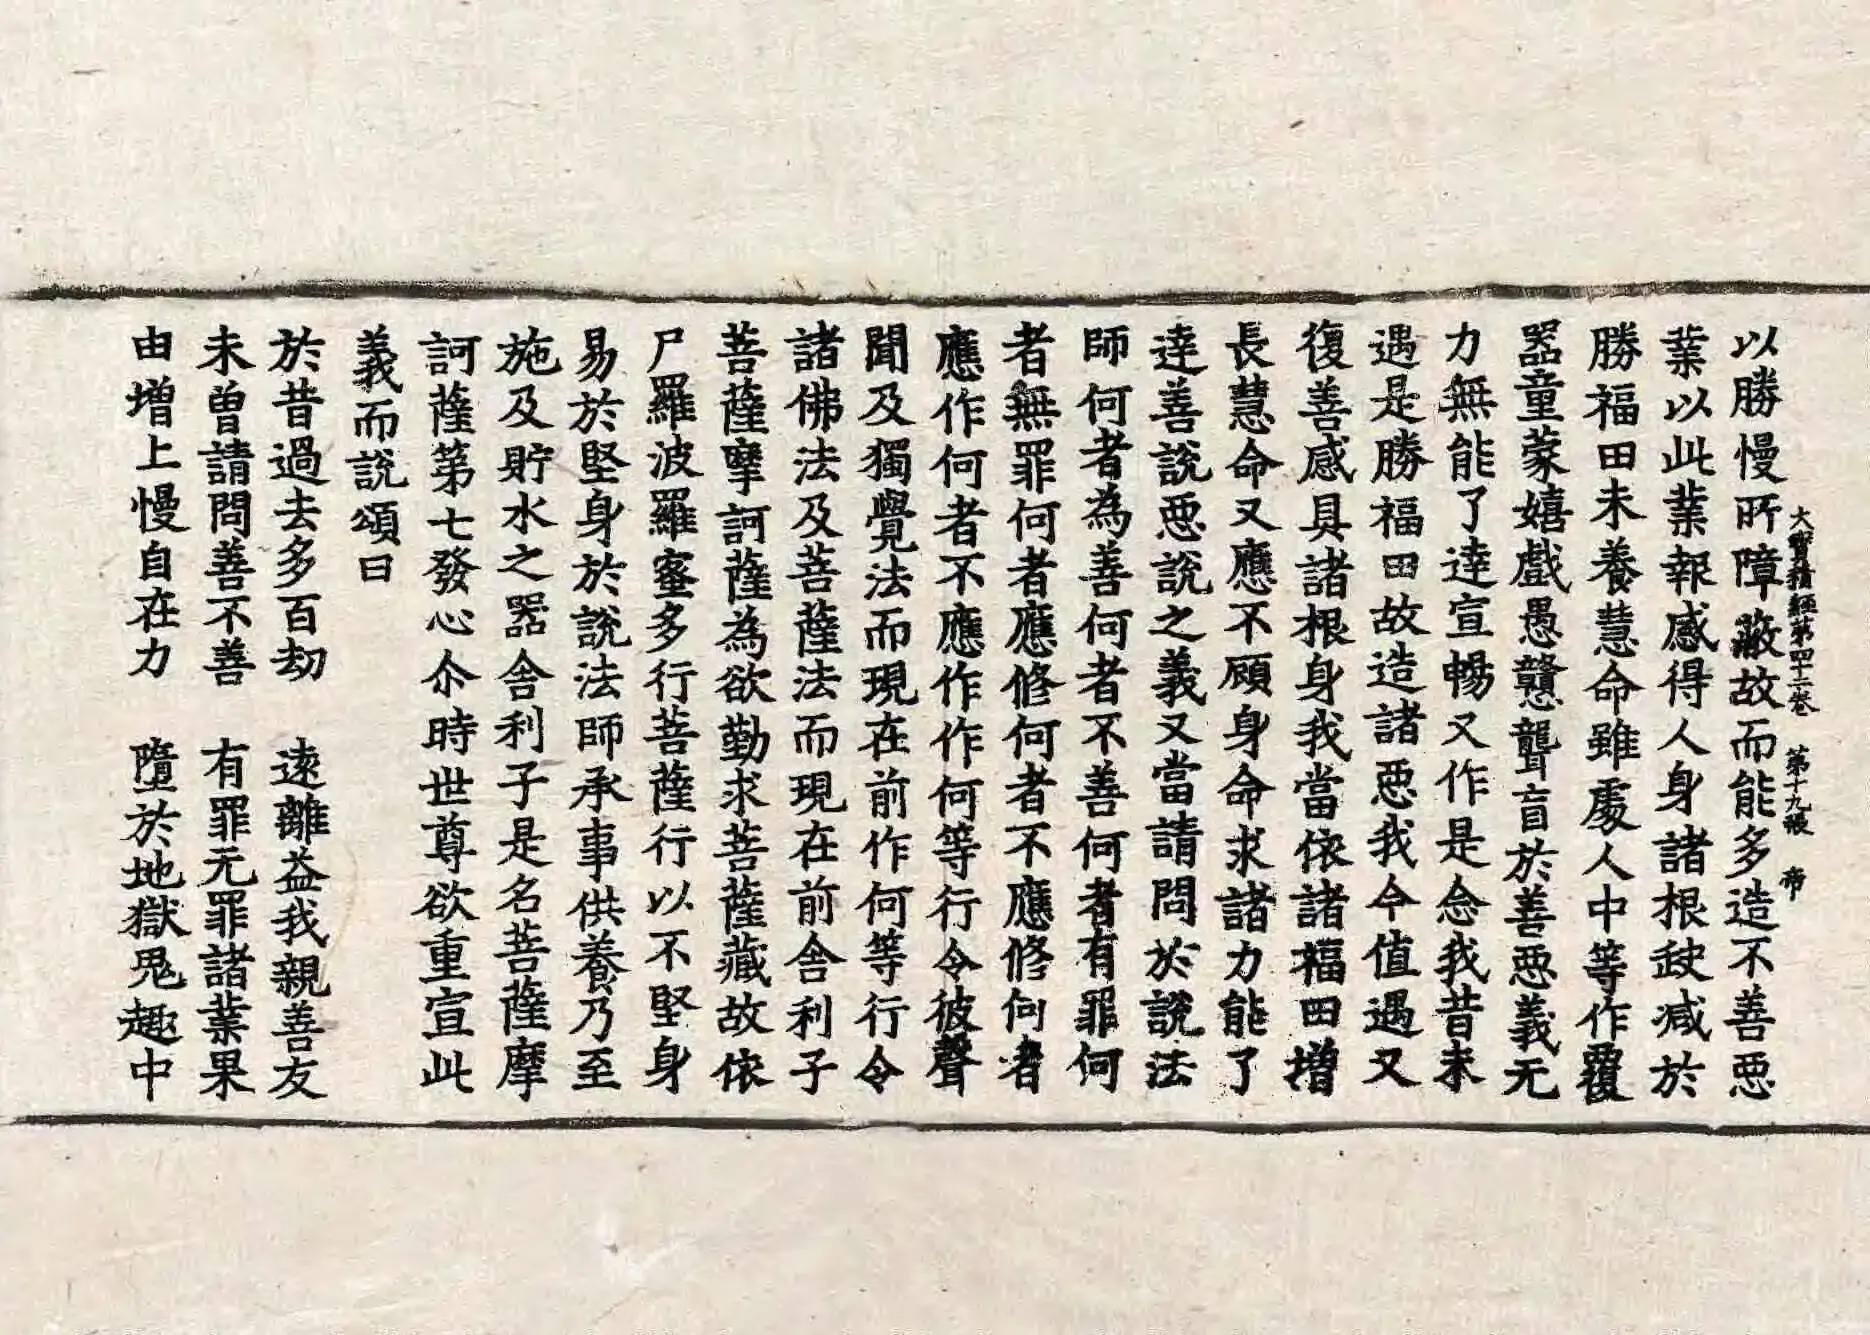 大寶積經第四十二卷　第十九張　帝
以勝慢所障蔽故而能多造不善惡
業以此業報感得人身諸根缺减於
勝福田未養慧命雖處人中等作覆
器童蒙嬉戲愚戇聾盲於善惡義无
力無能了達宣暢又作是念我昔未
遇是勝福田故造諸惡我今值遇又
復善感具諸根身我當依諸福田增
長慧命又應不顧身命求諸力能了
達善說惡說之義又當請問於說法
師何者為善何者不善何者有罪何
者無罪何者應修何者不應修何者
應作何者不應作作何等行令彼聲
聞及獨覺法而現在前作何等行令
諸佛法及菩薩法而現在前舍利子
菩薩摩訶薩為欲勤求菩薩藏故依
尸羅波羅蜜多行菩薩行以不堅身
易於堅身於說法師承事供養乃至
施及貯水之器舍利子是名菩薩摩
訶薩第七發心尒時世尊欲重宣此
義而說頌曰
於昔過去多百劫　遠離益我親善友
未曾請問善不善　有罪无罪諸業果
由增上慢自在力　墮於地獄鬼趣中